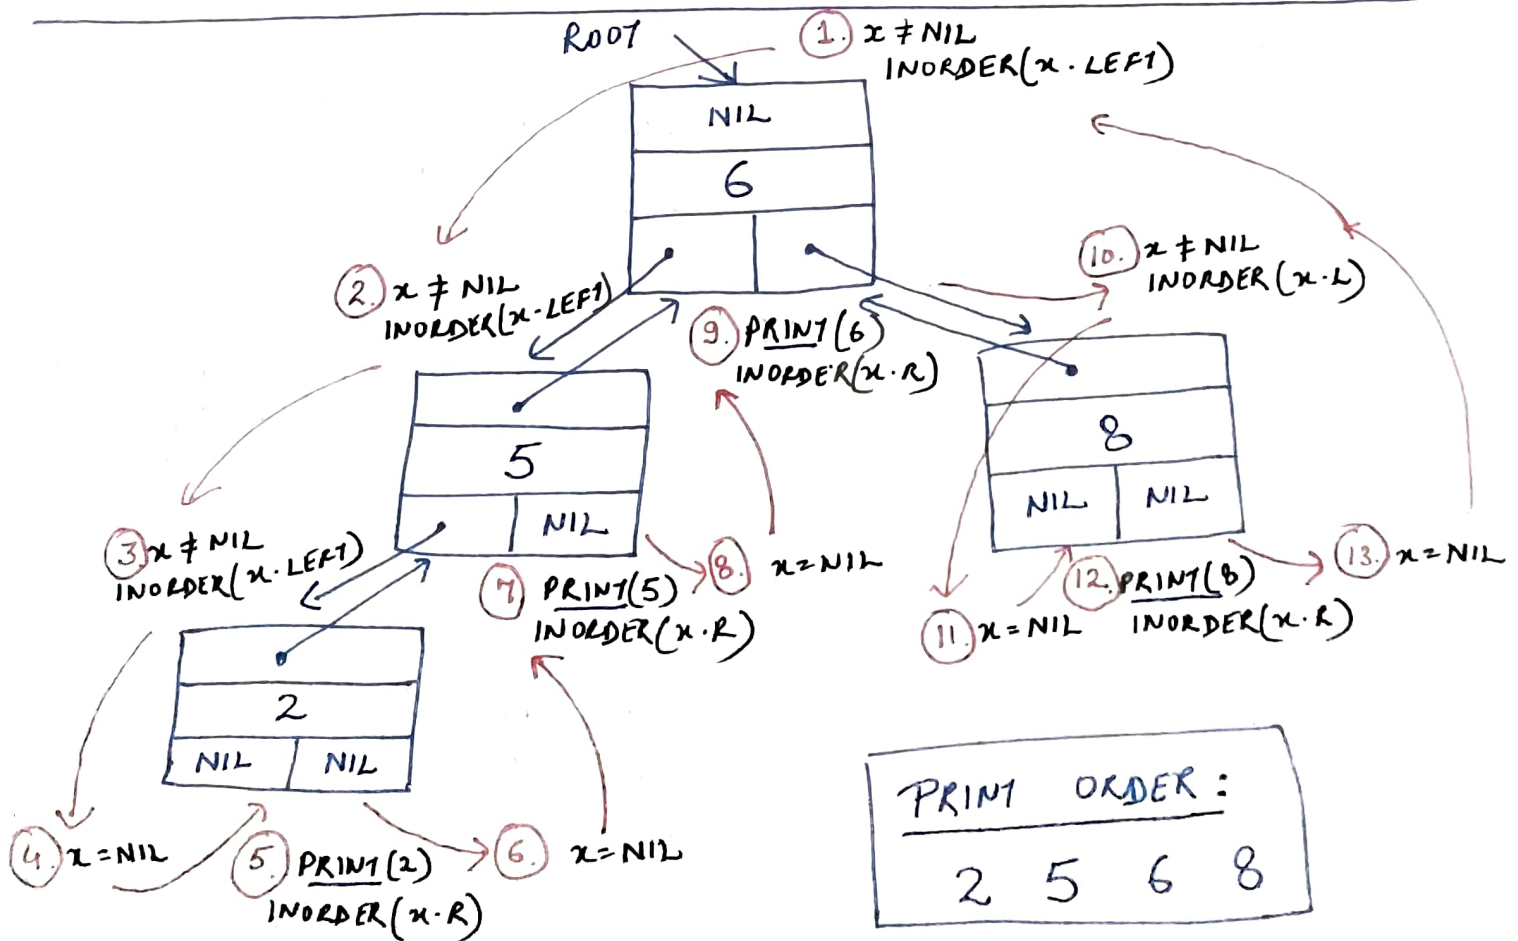 ROOT
1. x ≠ NIL
INORDER(x.LEFT)
NIL
6
2. x ≠ NIL
INORDER(x.LEFT)
9. PRINT(6)
INORDER(x.R)
10. x ≠ NIL
INORDER(x.L)
5
NIL
8
NIL NIL
3. x ≠ NIL
INORDER(x.LEFT)
7 PRINT(5)
INORDER(x.R)
8. x = NIL
11 x = NIL
12. PRINT(8)
INORDER(x.R)
13. x = NIL
2
NIL NIL
4. x = NIL
5. PRINT(2)
INORDER(x.R)
6. x = NIL
PRINT ORDER:
2 5 6 8